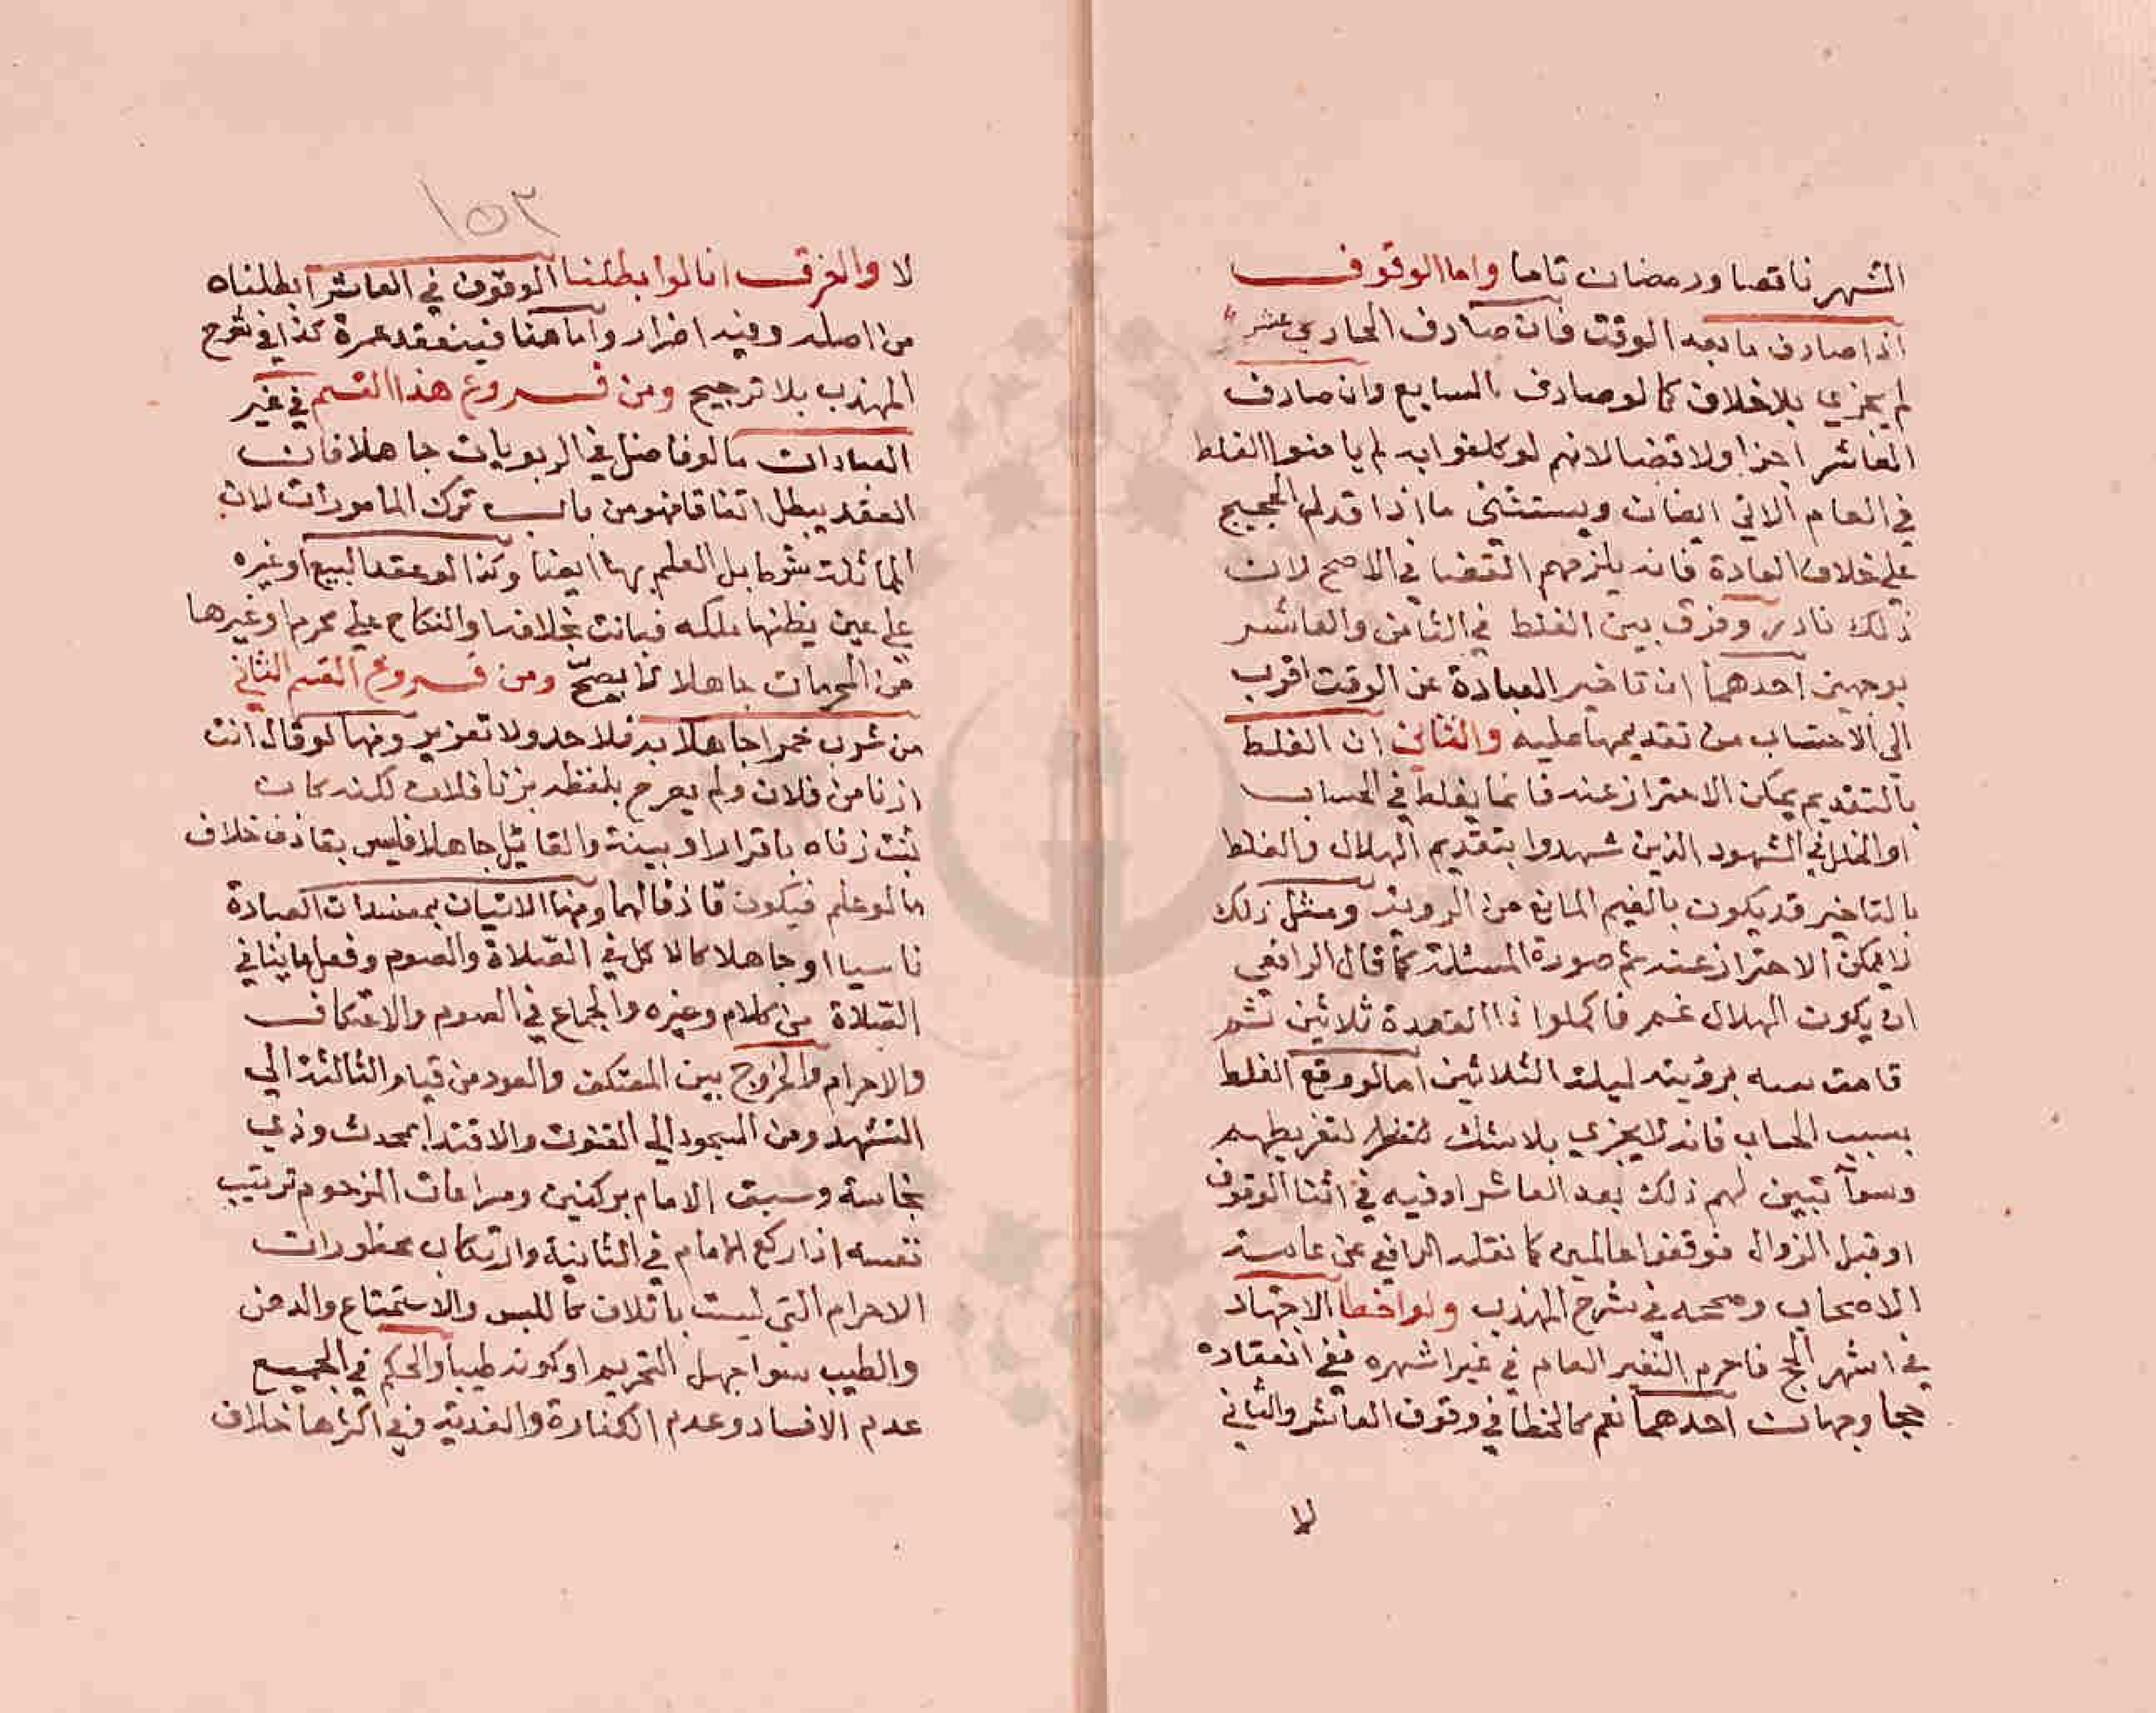 الشهر ناقصا ورمضان تاما واما الوقوف
اذا صادف ما بعد الوقت فان صادف الحادي عشر
لم يجزي بلا خلاف كما لو صادف السابع وان صادف
العاشر اجزا ولا قضا لانهم لو كلفوا به لم يامنوا الغلط
في العام الاتي ايضا ويستثني ما اذا قل الحجيج
علي خلاف العادة فانه يلزمهم القضا في الاصح لان
ذلك نادر وفرق بين الغلط في الثامن والعاشر
بوجهين احدهما ان تاخير العبادة عن الوقت اقرب
الي الاحتساب من تقديمها عليه والثاني ان الغلط
بالتقديم يمكن الاحتراز عنه فانما يغلط في الحساب
او الخلل في الشهود الذين شهدوا بتقديم الهلال والغلط
بالتاخير قد يكون بالغيم المانع من الروية ومثل ذلك
لا يمكن الاحتراز عنه ثم صورة المسئلة كما قال الرافعي
ان يكون الهلال غم فاكملوا ذا القعدة ثلاثين ثم
قامت بينة برؤيته ليلة الثلاثين اما لو وقع الغلط
بسبب الحساب فانه لا يجزي بلا شك لتفريطهم
وسوآ تبين لهم ذلك بعد العاشر او فيه في اثنا الوقوف
او قبل الزوال فوقفوا عالمين كما نقله الرافعي عن عامة
الاصحاب وصححه في شرح المهذب ولو اخطا الاجتهاد
في اشهر الحج فاحرم النفير العام في غير اشهره ففي انعقاده
حجا وجهان احدهما نعم كالخطا في وقوف العاشر والثاني
لا
١٥٣
لا والفرق انا لو ابطلنا الوقوف في العاشر ابطلناه
من اصله وفيه اضرار واما هنا فينعقد عمرة كذا في شرح
المهذب بلا ترجيح ومن فروع هذا القسم في غير
العبادات ما لو فاضل في الربويات جاهلا فان
العقد يبطل اتفاقا فهو من باب ترك المامورات لان
المماثلة شرط بل العلم بها ايضا وكذا لو عقد البيع او غيره
علي عين يظنها ملكه فبانت بخلافها والنكاح علي محرم او غيرها
من المحرمات جاهلا لا يصح ومن فروع القسم الثاني
من شرب خمرا جاهلا به فلا حد ولا تعزير ومنها لو قال انت
ازنا من فلان ولم يصرح بلفظه بزنا فلان لكنه كان
ثبت زناه باقرار او بينة والقائل جاهلا فليس بقاذف خلاف
ما لو علم فيكون قاذفا لهما ومنها الاتيان بمفسدات العبادة
ناسيا او جاهلا كالاكل في الصلاة والصوم وفعل ما ينافي
الصلاة من كلام وغيره والجماع في الصوم والاعتكاف
والاحرام والخروج بين المعتكف والعود من قيام الثالثة الي
التشهد ومن السجود الي القنوت والاقتدا بمحدث وذي
نجاسة وسبق الامام بركنين ومراعات المزحوم ترتيب
نفسه اذا ركع الامام في الثانية وارتكاب محظورات
الاحرام التي ليست باتلاف كاللبس والاستمتاع والدهن
والطيب سوا جهل التحريم او كونه طيبا والحكم في الجميع
عدم الافساد وعدم الكفارة والفدية وفي اكثرها خلاف